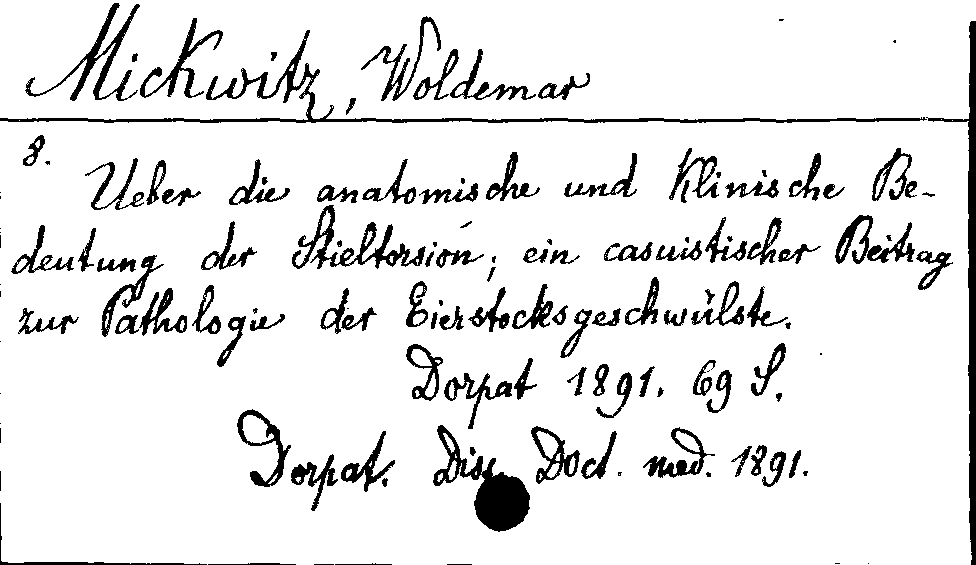 Mickwitz, Woldemar
8.
Ueber die anatomische und klinische Be-
deutung der Stieltorsion; ein casuistischer Beitrag
zur Pathologie der Eierstocksgeschwülste.
Dorpat 1891. 69 S.
Dorpat. Diss. Doct. med. 1891.